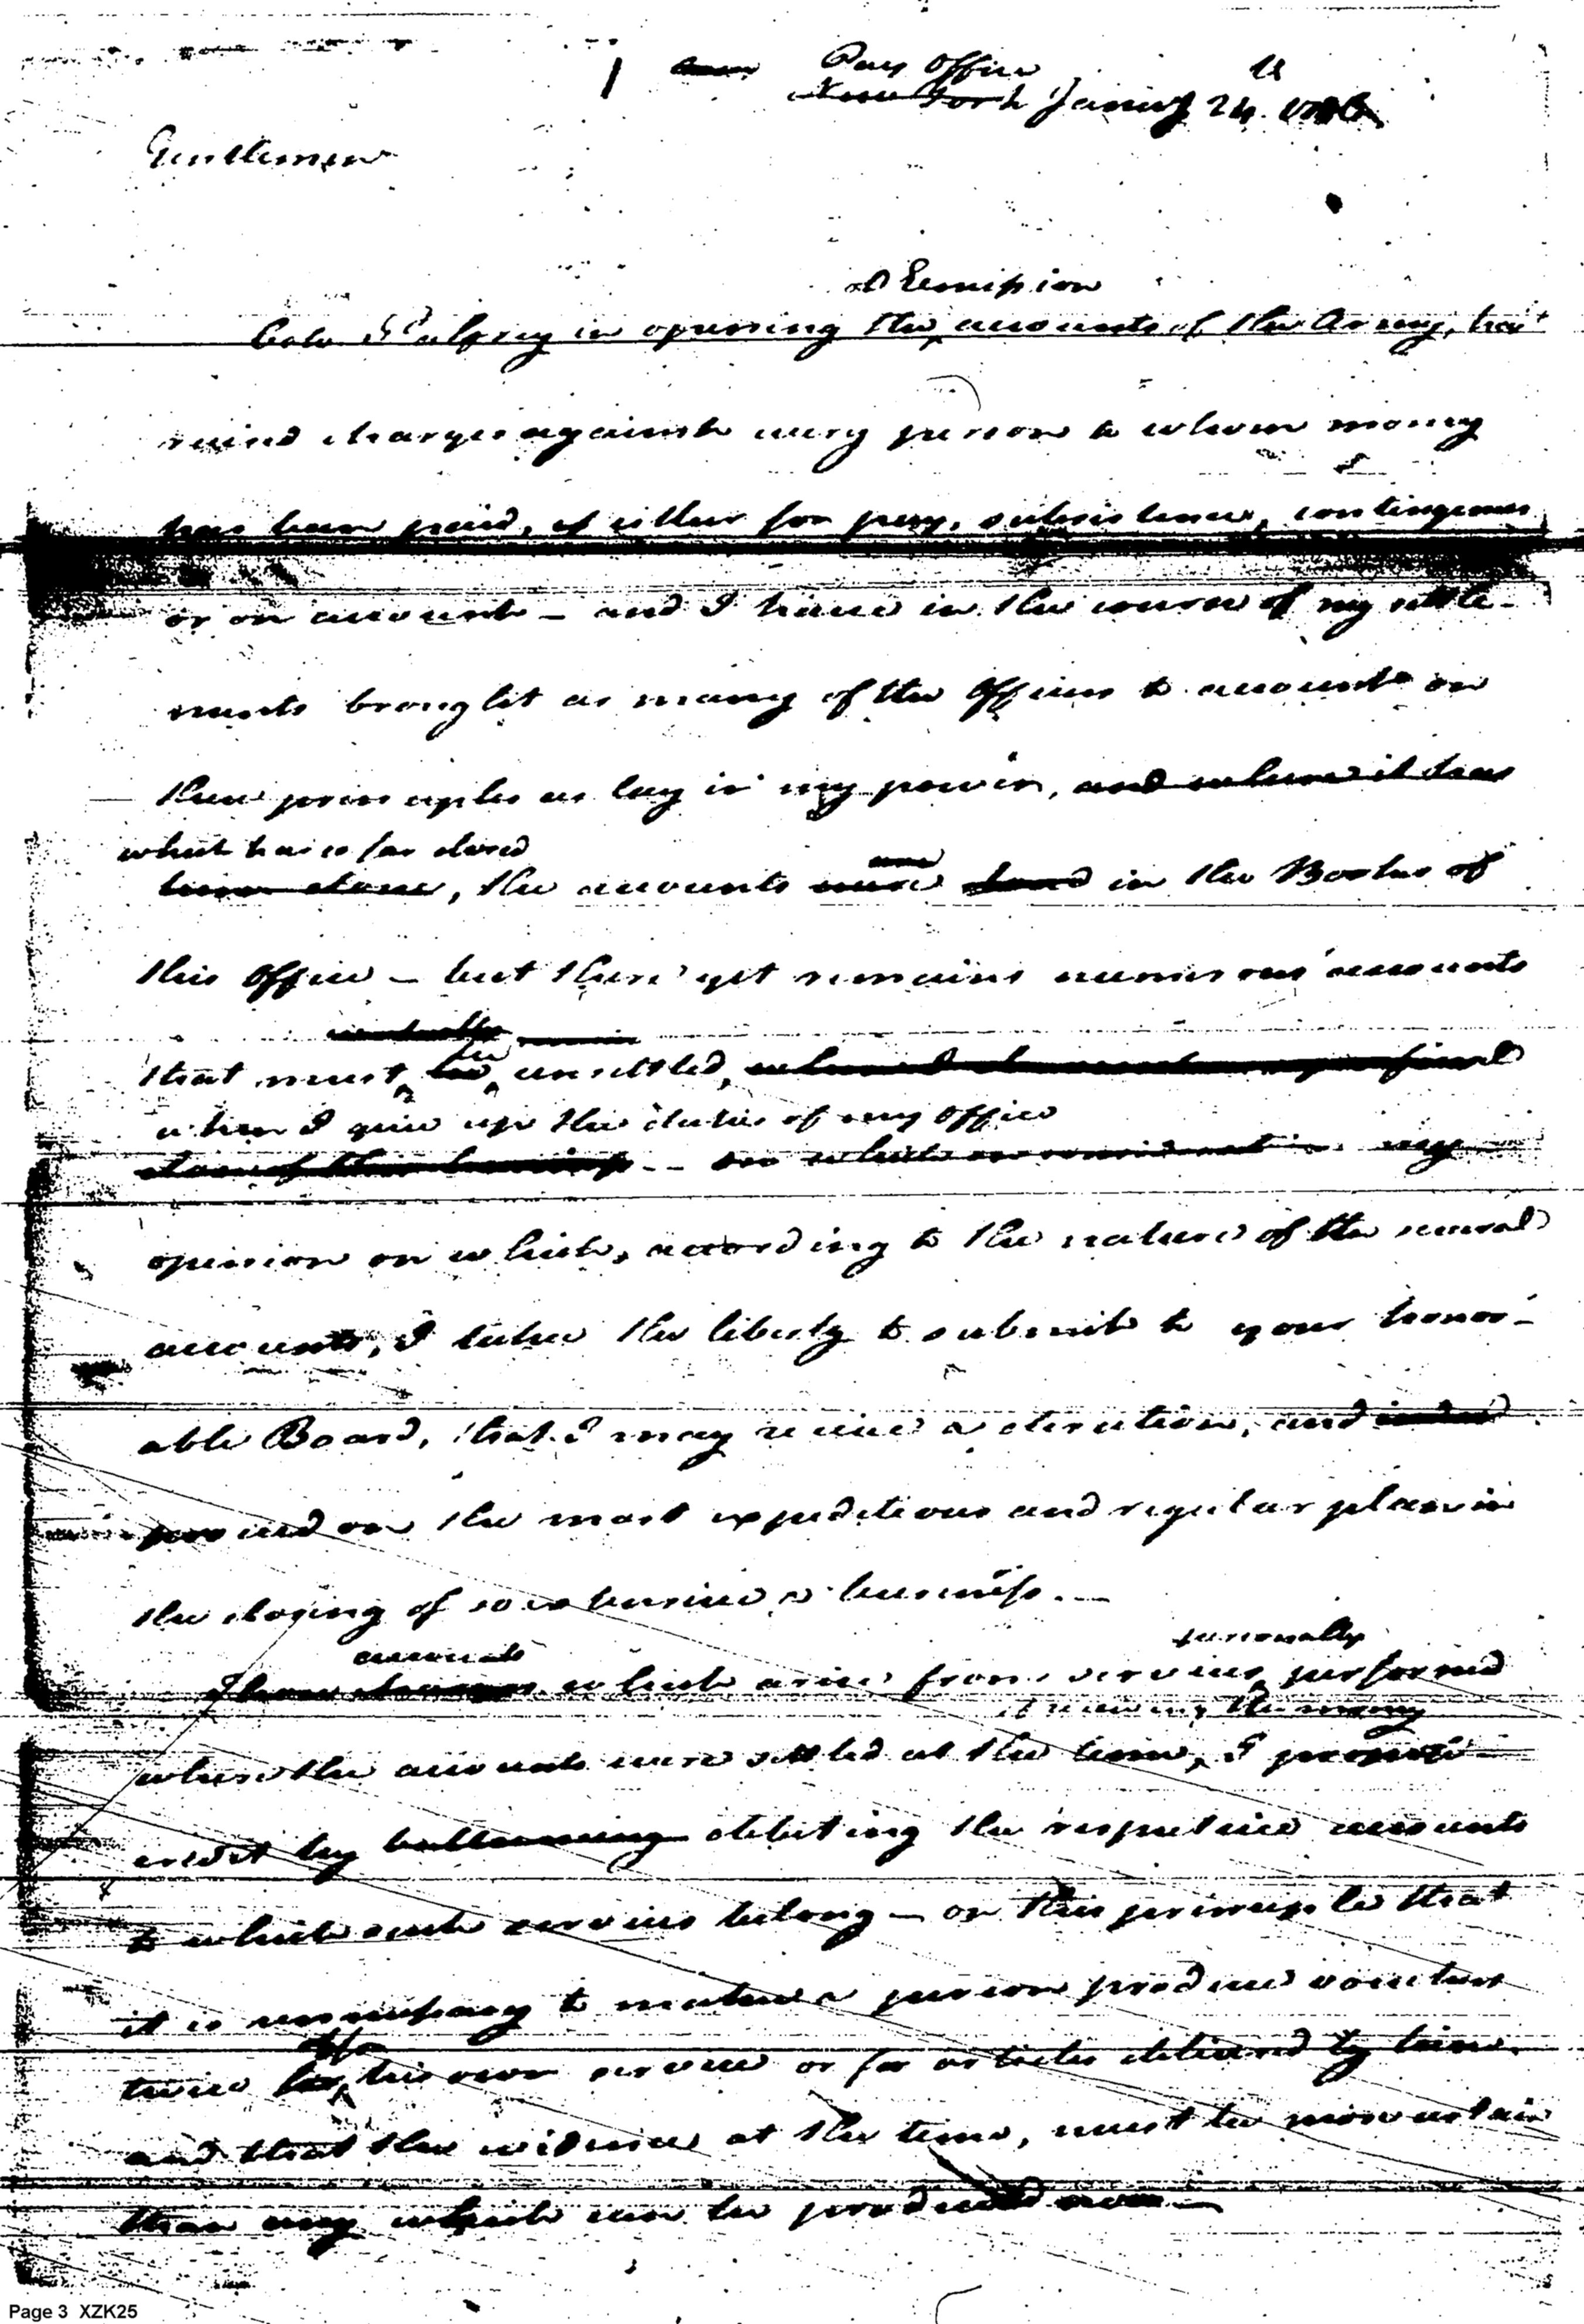 Pay Office
New York Janury 24
Gentlemen
old Emission
Colo Palfrey in opening the accounts of the Army, has
raised charges against every person to whom money
has been paid, if either for pay, subsistence, contingences
or on account – and I have in the course of my settle-
ments brought as many of the Officers to account on
these principles as lay in my power, and where it has
what has so far closed
been done, the accounts in the Books of
this Office – but there yet remains numerous accounts
that must be unsettled,
when I give up the duties of my Office
on which my
opinion on which, according to the nature of the several
accounts, I take the liberty to submit to your honor-
able Board, that I may receive a direction, and
proceed on the most expeditious and regular plan in
the closing of so extensive a business.—
accounts personally
which arise from services performed
receiving the money
where the accounts were settled at the time, I propose
credit by ballancing debiting the respective accounts
to which such services belong – on this principle that
it is unnecessary to make a person produce vouchers
twice for his own service or for articles delivered by him.
and that the evidence at the time, must be more certain
than any which can be produced now —
Page 3 XZK25